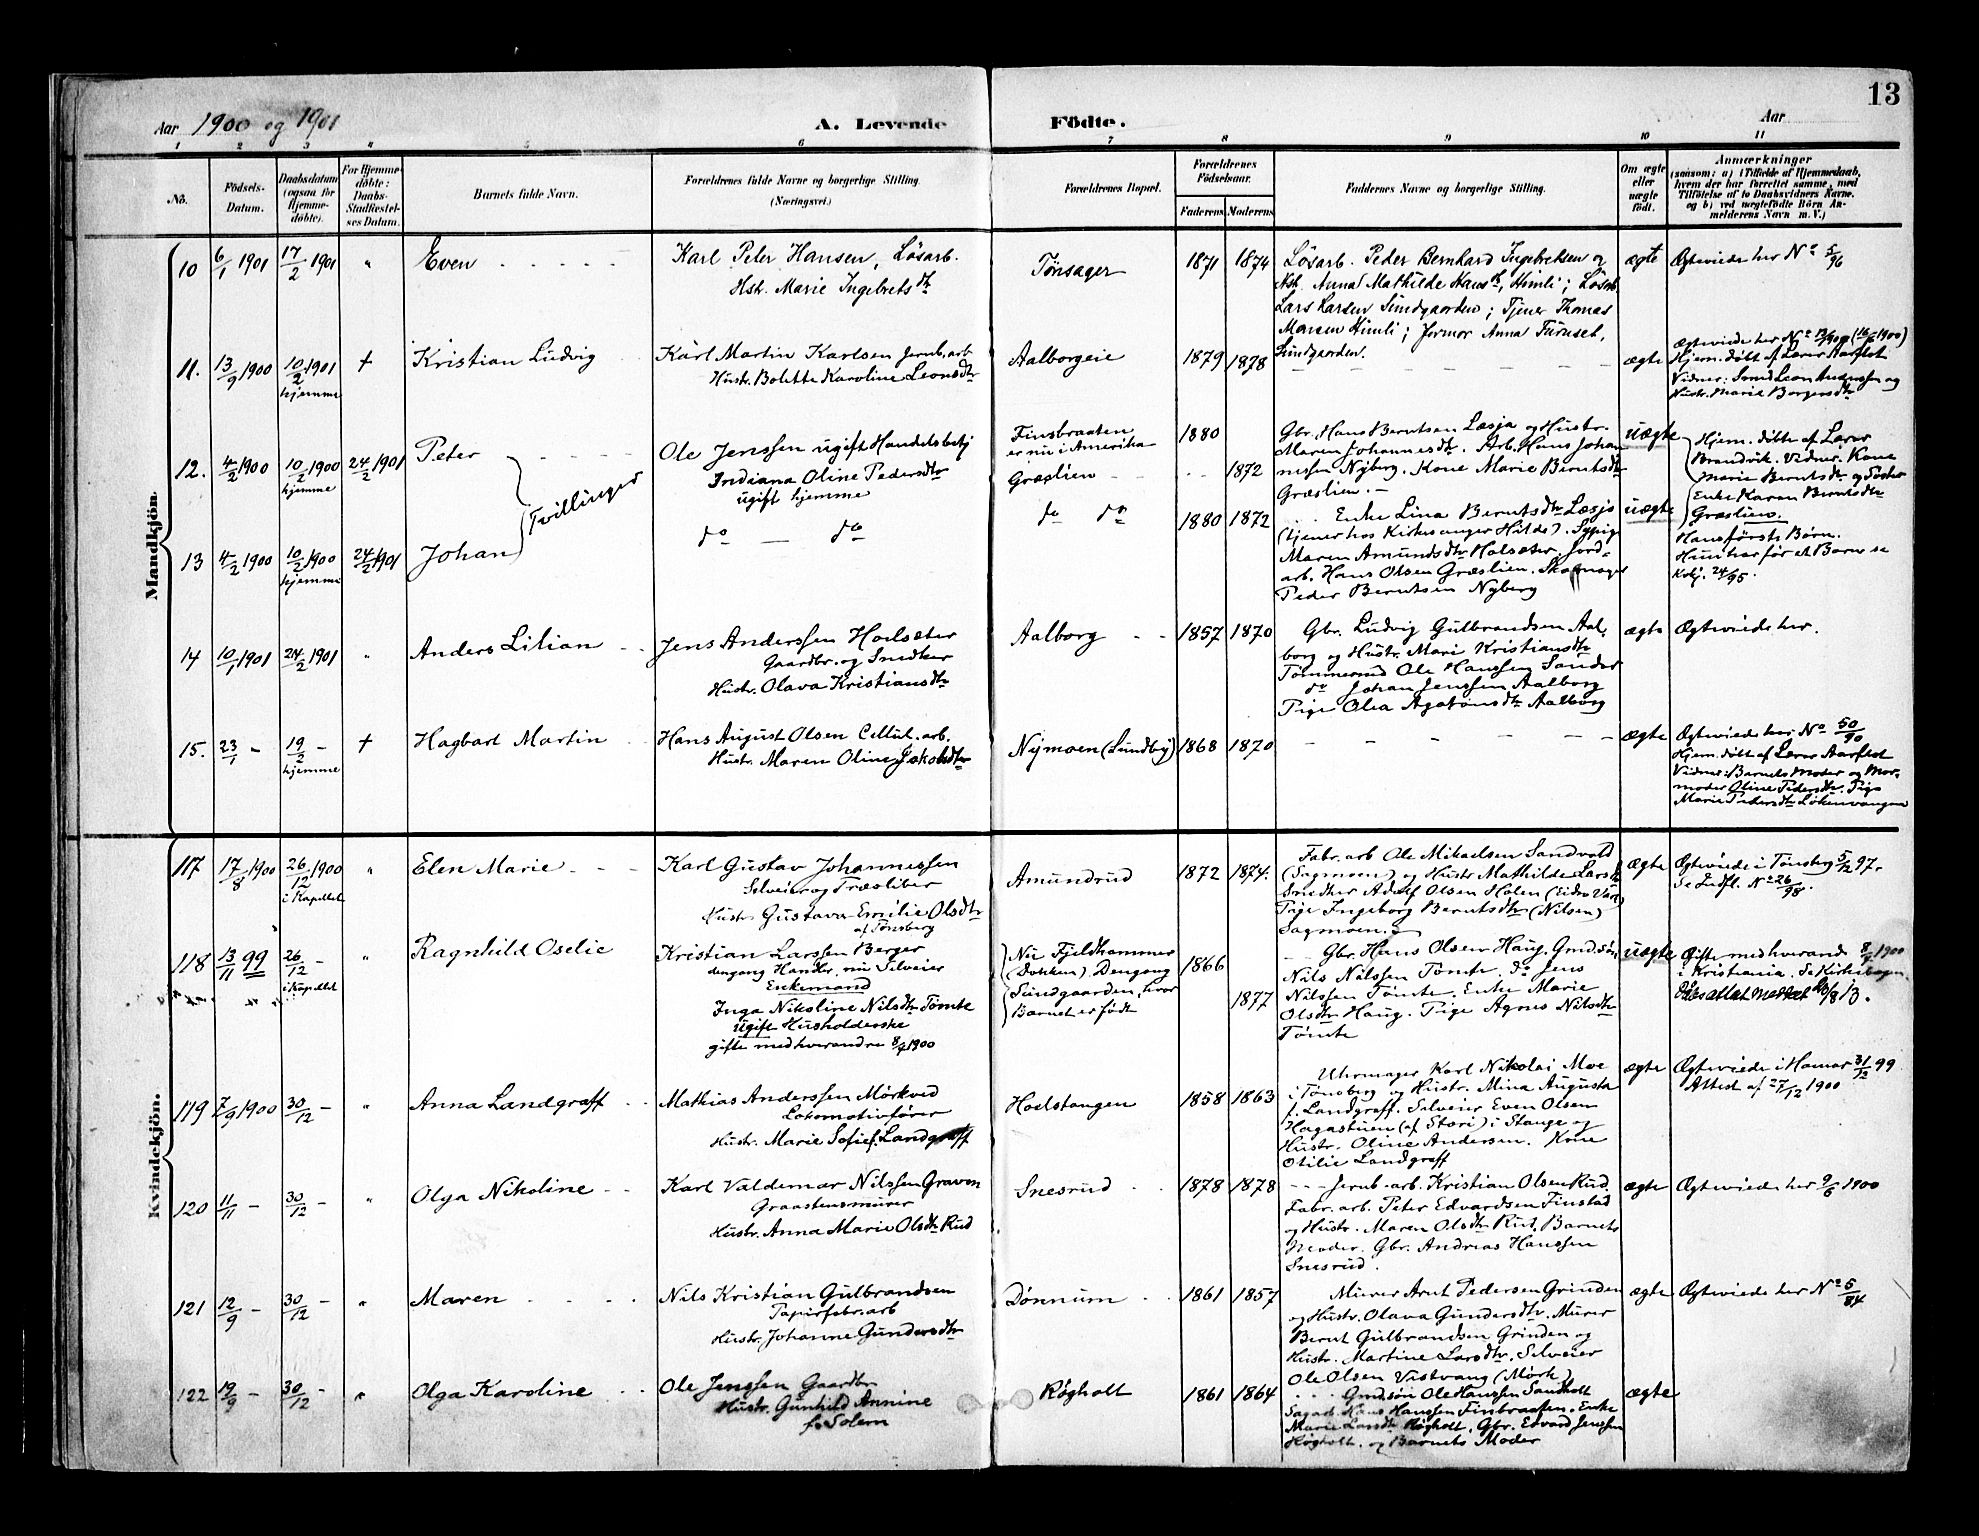 13
Aar 1900 og 1901
A. Levende
Födte.
Aar
1 2 3 " 5 6 7 8 9 10 11
No.
Födsels-Datum.
Daabsdatum (ogsaa for Hjemmedöbte).
For Hjemmedöbte: Daabs-Stadfæstelses Datum.
Barnets fulde Navn.
Forældrenes fulde Navne og borgerlige Stilling.
(Næringsvei.)
Forældrenes Bopæl.
Forældrenes Födselsaar.
Faderens Moderens
Faddernes Navne og borgerlige Stilling.
Om ægte eller uægte födt.
Anmærkninger
(saasom: a) i Tilfælde af Hjemmedaab, hvem der har forrettet samme, med Tilföielse af to Daabsvidners Navne, og b) ved uægtefödte Börn Anmelderens Navn m. V.)
Mandkjön.
10 6/1 1901 17/2 1901 " Even
Karl Peter Hansen, Løsarb.
Hstr. Marie Ingebretsdtr
Tønsager 1871 1874
Løsarb. Peder Bernhard Ingebretsen og
Hst. Anna Mathilde Hansdtr, Himli; Løsarb.
Lars Larsen Sundgaarden; Tjener Thomas
Marcen Himli; Formor Anna Furuset,
Sundgaarden.
ægte Ægteviede her No 5/96
11. 13/9 1900 10/2 1901 hjemme † Kristian Ludvig
Karl Martin Karlsen Jernb. arb
Hustr. Bolette Karoline Leonsdtr
Aalborgeie 1879 1878
ægte
Ægteviede her No 13/1900 (16/6 1900)
Hjem. døbt af Lærer Aarflot
Vidner: Smed Leon Anderssen og
Hustr. Marie Borgersdtr
12. 4/2 1900 10/2 1900 hjemme 24/2 1901 Peter
Tvillinger
Ole Jenssen ugift Handelsbetj
Indiana Oline Pedersdtr
ugift hjemme
Finsbraaten
er nu i Amerika 1880
Græslien 1872
Gbr. Hans Berntsen Læsja og Hustr.
Maren Johannesdtr. Arb. Hans Johan
nessen Nyberg. Kone Marie Berntsdtr
Græslien. –
uægte
Hjem. døbte af Lærer
Brandvik. Vidner. Kone
Marie Berntsdtr og Søster
Enke Karen Berntsdtr
Græslien.
13 4/2 1900 10/2 1900 hjemme 24/2 1901 Johan
do — do
do do 1880 1872
Enke Lina Berntsdtr Læsjø
(tjener hos Kirkesanger Hilde). Sypige
Maren Amundsdtr Holsæter. Jord-
arb. Hans Olsen Græslien. Skomager
Peder Berntsen Nyberg
uægte
Hans første Børn.
Hun har før et Barn se
Kbg. 24/95.
14 10/1 1901 24/2 1901 " Anders Lilian
Jens Anderssen Hoelsæter
Gaardbr. og Snedker
Hustr. Olava Kristiansdtr
Aalborg 1857 1870
Gbr. Ludvig Gulbrandsen Aal,
borg og Hustr. Mari Kristiansdtr
Tømmermd Ole Hanssen Sander
do Johan Jenssen Aalborg
Pige Olea Agatonsdtr Aalborg
ægte Ægteviede her.
15. 23/1 – 19/2 – hjemme † Hagbart Martin
Hans August Olsen Cellul. arb.
Hustr. Maren Oline Jakobsdtr
Nymoen (Lundby) 1868 1870
ægte
Ægteviede her No 50/90
Hjem. døbt af Lærer Aarflot
Vidner: Barnets Moder og Mor-
moder Oline Pedersdtr. Pige
Marie Pedersdtr Løkenvangen
Kvindekjön.
117 17/8 1900 26/12 1900 i Kapellet " Elen Marie
Karl Gustav Johannessen
Selveier og Træsliber
Hustr. Gustava Emilie Olsdtr
af Tønsberg
Amundrud 1872 1874.
Fabr. arb Ole Mikaelsen Sandvold
(Sagmoen) og Hustr Mathilde Larsdtr
Snedker Adolf Olsen Holen (Eidsv. Værk)
Pige Ingeborg Berntsdtr (Nilsen)
Sagmoen.
ægte
Ægteviede i Tønsberg 5/12 97.
Se Indfl. No 26/98.
118 13/11 99 26/12 – i Kapellet " Ragnhild Oselie
Kristian Larssen Berger
dengang Handlr. nu Selveier
Enkemand
Inga Nikoline Nilsdtr Tømte
ugift Husholderske
gifte med hverandre 8/7 1900
Nu Fjeldhammer
(Dokken). Dengang
Sundgaarden, hvor
Barnet er født
1866
1877
Gbr. Hans Olsen Haug. Gmdsøn
Nils Nilssen Tømte. do Jens
Nilssen Tømte. Enke Marie
Olsdtr Haug. Pige Agnes Nilsdtr
Tømte
uægte
Gifte med hverand 8/7 1900
i Kristiania. Se Kirkebogen.
119 7/9 1900 30/12 – " Anna Landgraff
Mathias Anderssen Mørkved
Lokomotivfører
Hustr. Marie Sofie f. Landgraff
Hoelstangen 1858 1863
Uhrmager Karl Nikolai Moe
i Tønsberg og Hustr. Mina Augusta
f. Landgraff. Selveier Even Olsen
Hagastuen (af Stori) i Stange og
Hustr. Oline Andersen. Kone
Otilie Landgraff
ægte
Ægteviede i Hamar 31/12 99
Attest af 27/12 1900
120 11/11 – 30/12 – " Olga Nikoline
Karl Valdemar Nilssen Graven
Graastensmurer
Hustr. Anna Marie Olsdtr Rud
Snesrud 1878 1878
Jernb. arb. Kristian Olsen Rud
Fabr. arb. Peter Edvardsen Finstad
og Hustr. Maren Olsdtr Rud. Barnets
Moder. Gbr. Andreas Hanssen
Snesrud.
ægte Ægteviede her 9/6 1900
121 12/9 – 30/12 – " Maren
Nils Kristian Gulbrandsen
Papirfabr. arb
Hustr. Johanne Gundersdtr
Dønnum 1861 1857
Murer Arnt Pedersen Grinden
og Hustr. Olava Gundersdtr. Murer
Bernt Gulbrandsen Grinden og
Hustr. Martine Larsdtr. Selveier
Ole Olsen Vastvang (Mørk)
ægte Ægteviede her No 5/84
122 19/9 – 30/12 – " Olga Karoline
Ole Jenssen Gaardbr
Hustr. Gunhild Annine
f. Solem
Røgholt 1861 1864
Gmdsøn Ole Hanssen Sandholt
Sagarb. Hans Hanssen Finbraaten. Enke
Marie Larsdtr Røgholt. Gbr. Edvard Jenssen
Røgholt. og Barnets Moder
ægte